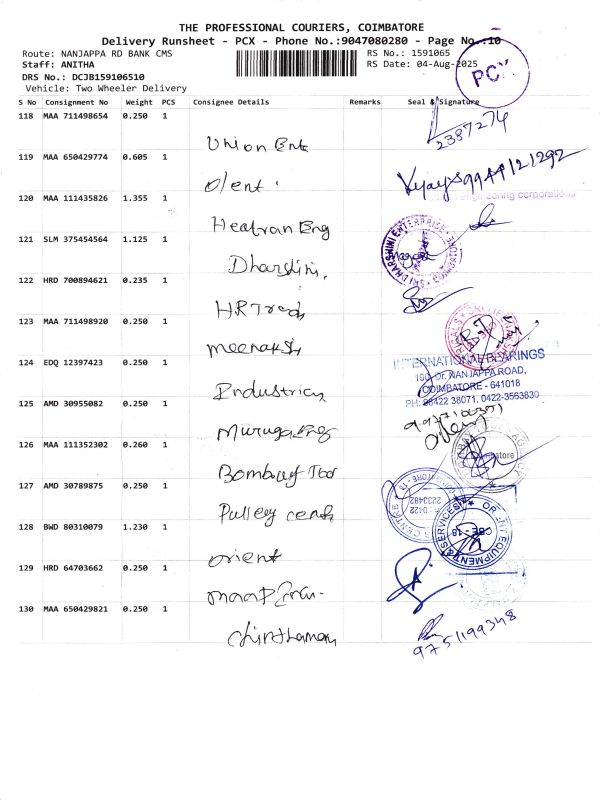 THE PROFESSIONAL COURIERS, COIMBATORE
Delivery Runsheet - PCX - Phone No.:9047080280 - Page No.:10
Route: NANJAPPA RD BANK CMS RS No.: 1591065
Staff: ANITHA RS Date: 04-Aug-2025
PCX
DRS No.: DCJB159106510
Vehicle: Two Wheeler Delivery
S No Consignment No Weight PCS Consignee Details Remarks Seal & Signature
118 MAA 711498654 0.250 1
Union Ent 2387274
119 MAA 650429774 0.605 1
Olent Vijay 9944121292
120 MAA 111435826 1.355 1
engineering corporations
Heatran Eng
121 SLM 375454564 1.125 1
SRI DHARSHINI ENTERPRISE
Dharshini
122 HRD 700894621 0.235 1
HR Trads
123 MAA 711498920 1
0.250
Meenakshi
INTERNATIONAL BEARINGS
124 EDQ 12397423 0.250 1
190, Dr. NANJAPPA ROAD,
COIMBATORE - 641018
Industries
PH: 98422 38071, 0422-3563830
125 AMD 30955082 0.250 1
Muruga Eng
126 MAA 111352302 0.260 1
Coimbatore
Bombay Tool
127 AMD 30789875 0.250 1
CENTRE
0422
2233482
Pulley Centre
128 BWD 80310079 1.230 1
ORIENT EQUIPMENT & SERVICES
CBE - 18
orient
129 HRD 64703662 0.250 1
130 MAA 650429821 0.250 1
Chinthamani 9751199348